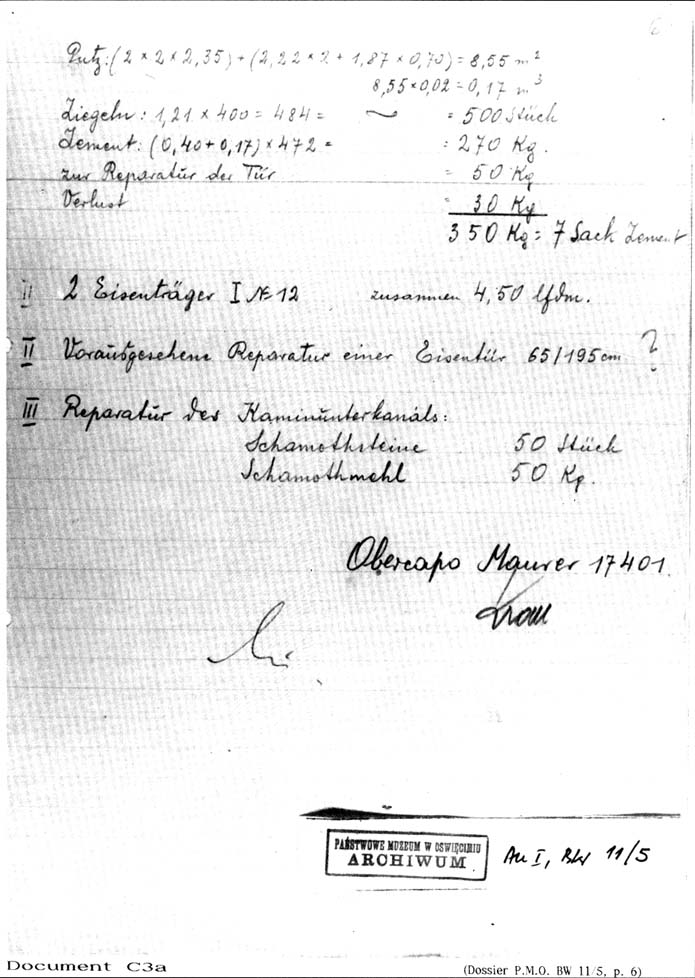 6
Putz: (2 × 2 × 2,35) + (2,22 × 2 + 1,87 × 0,70) = 8,55 m²
8,55 × 0,02 = 0,17 m³
Ziegeln: 1,21 × 400 = 484 = ~ = 500 Stück
Zement: (0,40 + 0,17) × 472 = = 270 Kg.
zur Reparatur der Tür = 50 Kg
Verlust = 30 Kg
350 Kg = 7 Sack Zement
II 2 Eisenträger I № 12 zusammen 4,50 lfdm.
II Vorausgesehene Reparatur einer Eisentür 65/195 cm ?
III Reparatur des Kaminunterkanals:
Schamothsteine 50 Stück
Schamothmehl 50 Kg.
Obercapo Maurer 17401.
PAŃSTWOWE MUZEUM W OŚWIĘCIMIU
ARCHIWUM
Au I, BW 11/5
Document C3a
(Dossier P.M.O. BW 11/5, p. 6)